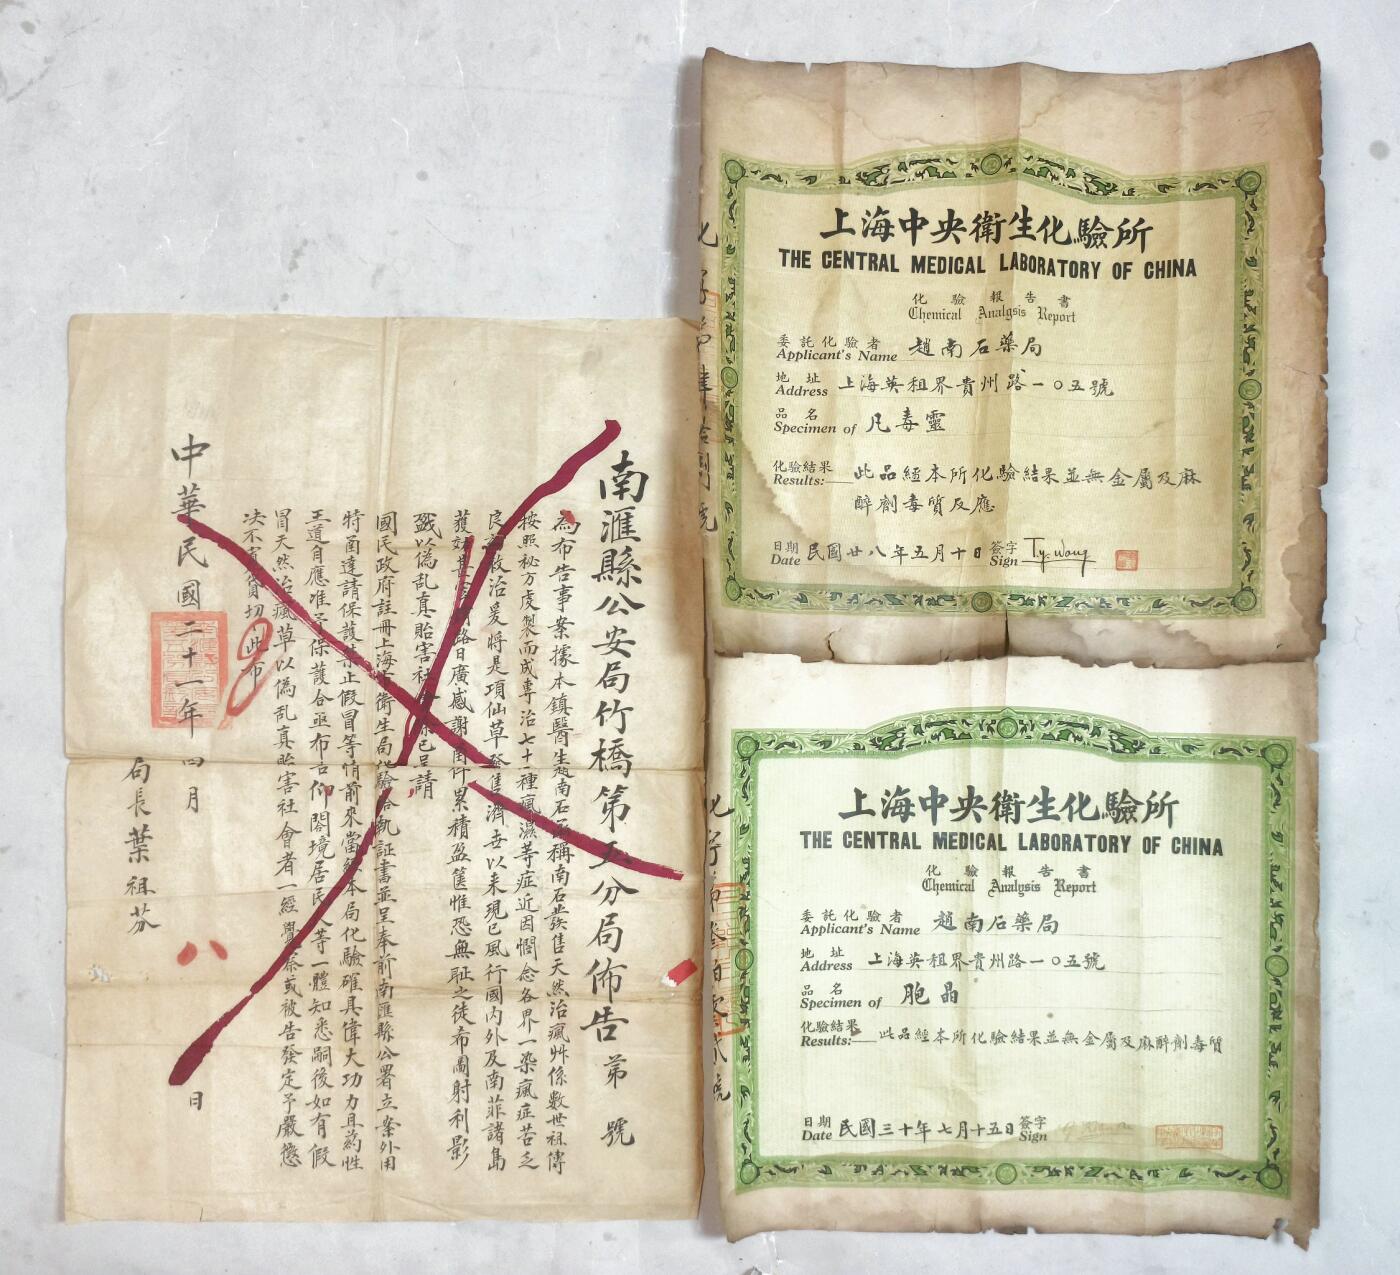 南滙縣公安局竹橋第五分局佈告 第 號
為布告事案據本鎮醫生趙南石函稱南石發售天然治瘋艸係數世祖傳
按照祕方虔製而成專治七十二種瘋濕等症近因憫念各界一染瘋症苦乏
良 救治爰將是項仙草發售濟世以來現已風行國內外及南菲諸島
獲效甚 路日廣感謝函件累積盈篋惟恐無恥之徒希圖射利影
戤以偽乱真貽害社 已呈請
國民政府註冊上海市衛生局化驗給執証書並呈奉前南匯縣公署立案外用
特函達請保護禁止假冒等情前來當經本局化驗確具偉大功力且葯性
王道自應准予保護合亟布告仰閤境居民人等一體知悉嗣後如有假
冒天然治瘋草以偽乱真貽害社會者一經覺察或被告發定予嚴懲
决不寬貸切 此布
中華民國二十一年四月 日
局長葉祖芬
八
上海中央衛生化驗所
THE CENTRAL MEDICAL LABORATORY OF CHINA
化驗報告書
Chemical Analysis Report
委託化驗者 趙南石藥局
Applicant's Name
地址 上海英租界貴州路一〇五號
Address
品名 凡毒靈
Specimen of
化驗結果 此品經本所化驗結果並無金屬及麻
Results:
醉劑毒質反應
日期 民國廿八年五月十日 簽字 T.y. Wang
Date Sign
上海中央衛生化驗所
THE CENTRAL MEDICAL LABORATORY OF CHINA
化驗報告書
Chemical Analysis Report
委託化驗者 趙南石藥局
Applicant's Name
地址 上海英租界貴州路一〇五號
Address
品名 胞晶
Specimen of
化驗結果 此品經本所化驗結果並無金屬及麻醉劑毒質
Results:
日期 民國三十年七月十五日 簽字
Date Sign